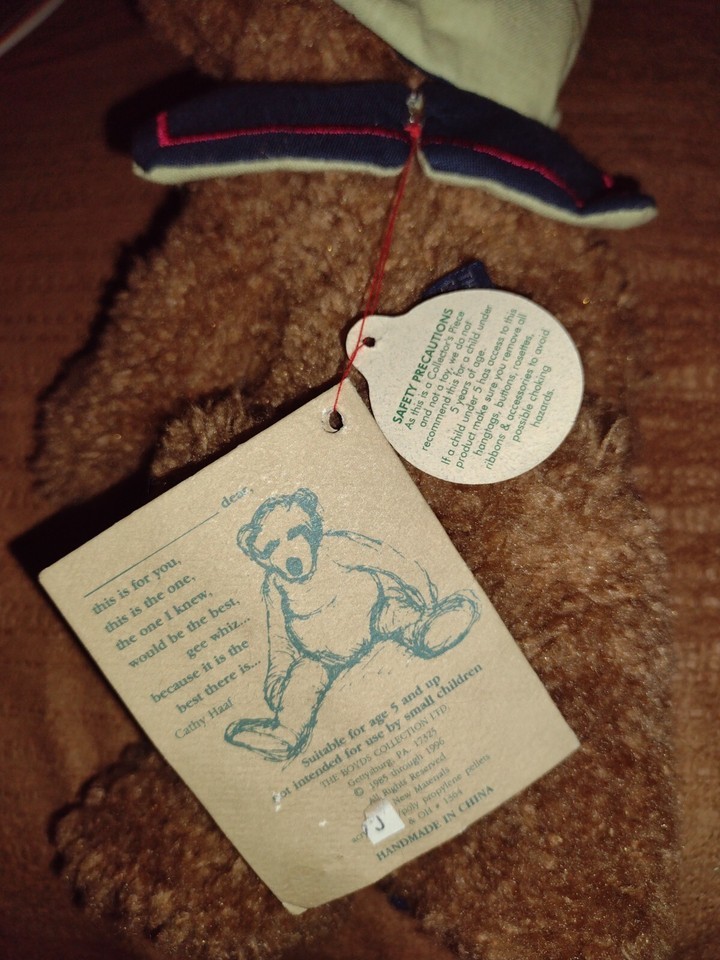 SAFETY PRECAUTIONS
As this is a Collector's Piece
and not a toy, we do not
recommend this for a child under
5 years of age.
If a child under 5 has access to this
product make sure you remove all
hangtags, buttons, rosettes,
ribbons & accessories to avoid
possible choking
hazards.
dear,
this is for you,
this is the one,
the one I knew,
would be the best,
gee whiz...
because it is the
best there is...
Cathy Haaf
Suitable for age 5 and up
not intended for use by small children
THE BOYDS COLLECTION LTD.
Gettysburg, PA 17325
© 1985 through 1996
All Rights Reserved
New Materials
poly propylene pellets
& OH • 1364
J
HANDMADE IN CHINA